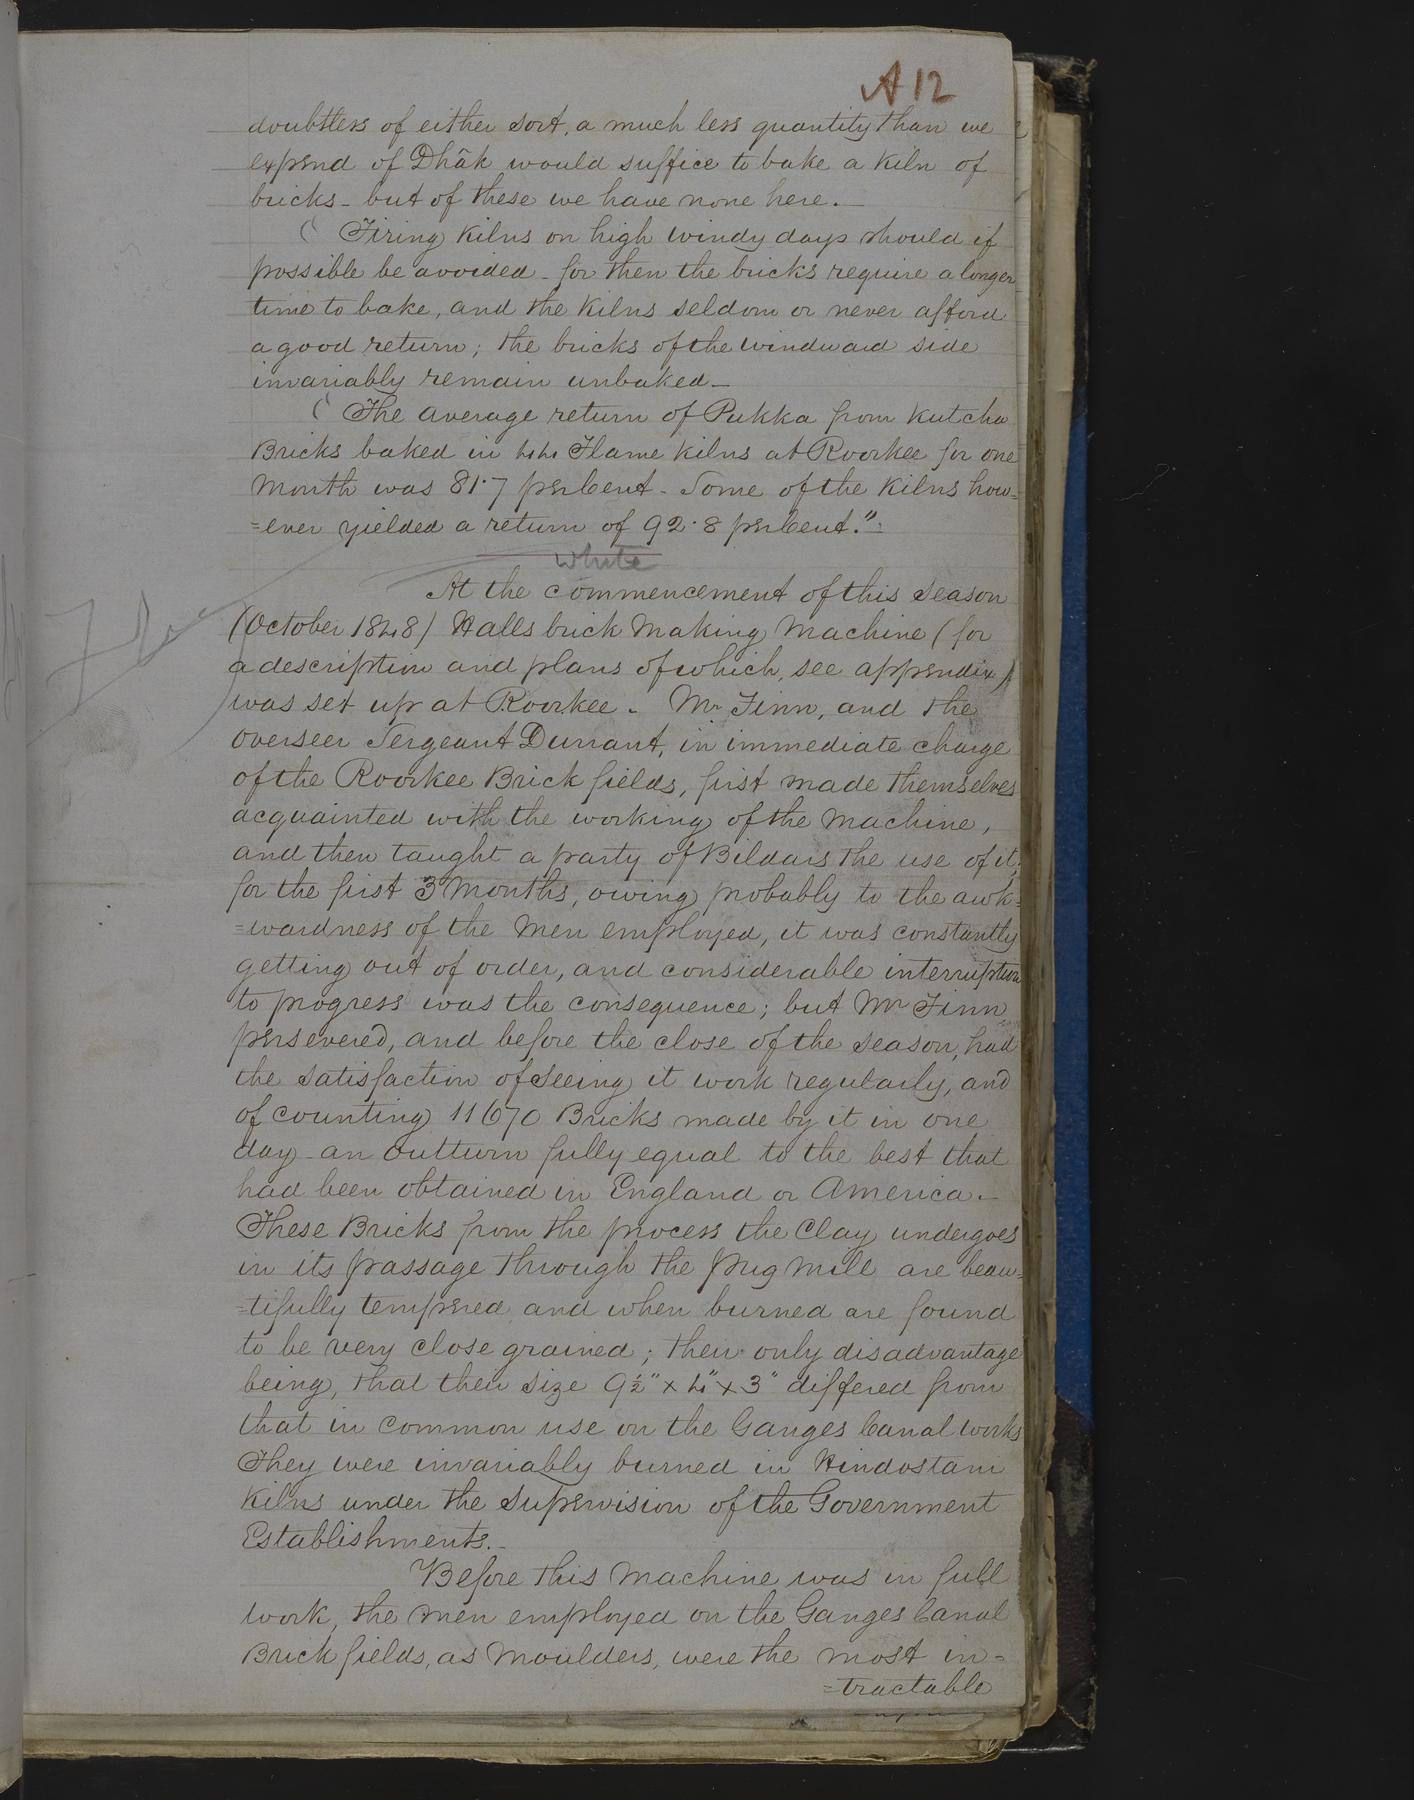 A 12
doubtless of either sort, a much less quantity than we
expend of Dhâk would suffice to bake a kiln of
bricks - but of these we have none here. -
( Firing Kilns on high windy days should if
possible be avoided - for then the bricks require a longer
time to bake, and the Kilns seldom or never afford
a good return; the bricks of the windward side
invariably remain unbaked -
( The average return of Pukka from Kutcha
Bricks baked in 44 Flame Kilns at Roorkee for one
Month was 81.7 per Cent - Some of the Kilns how=
=ever yielded a return of 92.8 per Cent."
White
At the commencement of this Season
(October 1848) Halls brick Making Machine (for
a description and plans of which, see appendix)
was set up at Roorkee. Mr Finn, and the
Overseer Sergeant Durrant, in immediate charge
of the Roorkee Brick fields, first made themselves
acquainted with the working of the Machine,
and then taught a party of Bildars the use of it;
for the first 3 Months, owing probably to the awk=
=wardness of the Men employed, it was constantly
getting out of order, and considerable interruption
to progress was the consequence; but Mr Finn
persevered, and before the close of the Season, had
the satisfaction of Seeing it work regularly, and
of counting 11670 Bricks made by it in one
day - an outturn fully equal to the best that
had been obtained in England or America. -
These Bricks from the process the Clay undergoes
in its passage through the Pug Mill are beau=
=tifully tempered and when burned are found
to be very close grained; their only disadvantage
being, that their size 9½" x 4" x 3" differed from
that in common use on the Ganges Canal works
They were invariably burned in Hindostani
Kilns under the Supervision of the Government
Establishments. -
Before this Machine was in full
work, the men employed on the Ganges Canal
Brick fields, as Moulders, were the most in=
=tractable